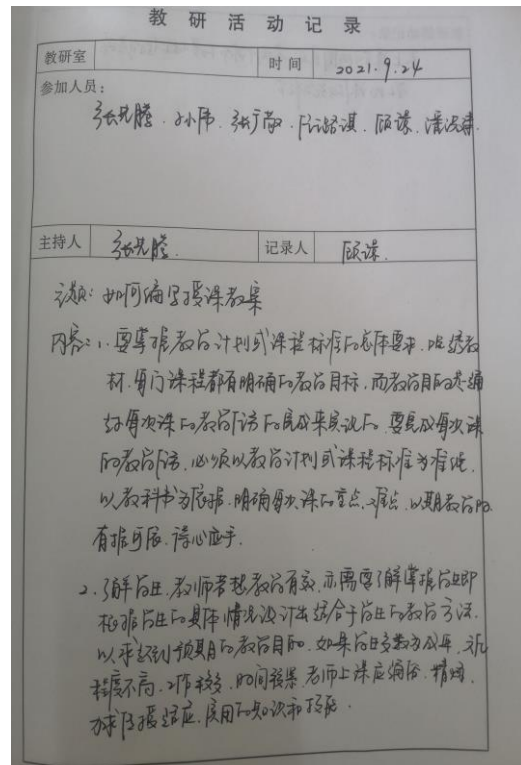 教研活动记录
教研室 时间 2021.9.24
参加人员：
张先腾、孙伟、张广敬、 顾谋、
主持人 张先腾 记录人 顾谋
主题：如何编写授课教案
内容：1、要掌握教学计划或课程标准的总体要求，
材，每门课程都有明确的教学目标，而教学目的是通
过每次课的教学任务的完成来实现的，要完成每次课
的教学任务，必须以教学计划或课程标准为准绳，
以教科书为依据，明确每次课的重点、难点，以期教学时
有据可依，得心应手。
2、了解学生，教师若想教学有效，亦需要了解掌握学生即
根据学生的具体情况设计出适合于学生的教学方法，
以求达到预期的教学目的，如果学生多数为成年，文化
程度不高，工作较多，时间较紧，老师上课应 、精炼，
力求传授适应、实用的知识和技能。